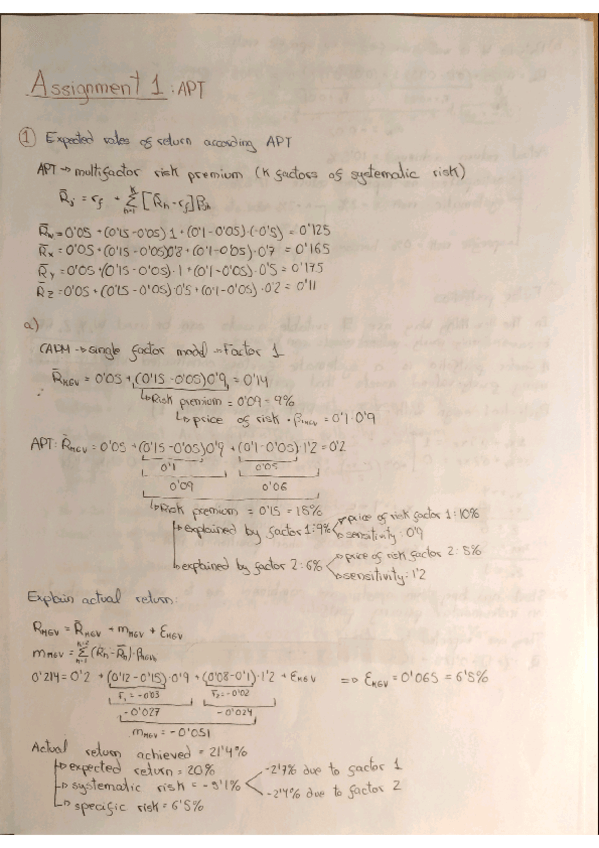 Assignment 1: APT
① Expected rates of return according APT
APT → multifactor risk premium (K factors of systematic risk)
R̄j = rf + Σ [R̄n - rf] βjn
R̄w = 0'05 + (0'15 - 0'05) 1 + (0'1 - 0'05) · (-0'5) = 0'125
R̄x = 0'05 + (0'15 - 0'05) 0'8 + (0'1 - 0'05) · 0'7 = 0'165
R̄y = 0'05 + (0'15 - 0'05) · 1 + (0'1 - 0'05) · 0'5 = 0'175
R̄z = 0'05 + (0'15 - 0'05) · 0'5 + (0'1 - 0'05) · 0'2 = 0'11
a)
CAPM → single factor model → Factor 1
R̄MGV = 0'05 + (0'15 - 0'05) 0'9 = 0'14
↳ Risk premium = 0'09 = 9%
↳ price of risk · βMGV = 0'1 · 0'9
APT: R̄MGV = 0'05 + (0'15 - 0'05) 0'9 + (0'1 - 0'05) · 1'2 = 0'2
0'1 0'05
0'09 0'06
↳ Risk premium = 0'15 = 15%
explained by factor 1: 9% price of risk factor 1: 10%
sensitivity: 0'9
explained by factor 2: 6% price of risk factor 2: 5%
sensitivity: 1'2
Explain actual return:
RMGV = R̄MGV + mMGV + εMGV
mMGV = Σ (Rn - R̄n) · βMGVn
0'214 = 0'2 + (0'12 - 0'15) · 0'9 + (0'08 - 0'1) · 1'2 + εMGV => εMGV = 0'065 = 6'5%
r1 = -0'03 r2 = -0'02
-0'027 -0'024
mMGV = -0'051
Actual return achieved = 21'4%
expected return = 20%
systematic risk = -5'1% -2'7% due to factor 1
-2'4% due to factor 2
specific risk = 6'5%